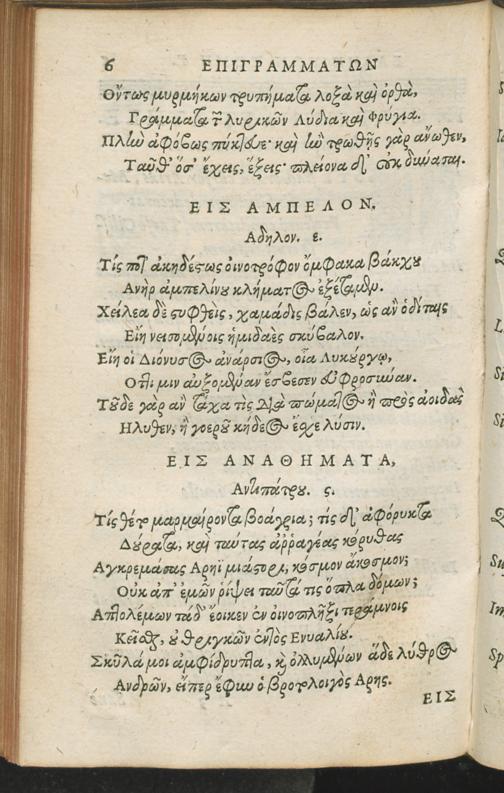 6 ΕΠΙΓΡΑΜΜΑΤΩΝ
Οὕτως μυρμήκων τρυπήματα λοξὰ καὶ ὀρθὰ,
Γράμματα τῶν λυρικῶν Λύδια καὶ Φρύγια.
Πλὴν ἀφόβως πύκτευε· καὶ ἢν τρωθῇς γὰρ ἄνωθεν,
Ταῦθ' ὅσ' ἔχεις, ἕξεις· πλείονα δ' οὐκ δύνασαι.
ΕΙΣ ΑΜΠΕΛΟΝ.
Αδηλον. ε.
Τίς ποτ' ἀκηδέστως οἰνοτρόφον ὄμφακα βάκχου
Ανὴρ ἀμπελίνου κλήματος ἐξέταμεν.
Χείλεα δὲ στυφθεὶς, χαμάδις βάλεν, ὡς ἂν ὁδίταις
Εἴη νεισομένοις ἡμιδαὲς σκύβαλον.
Εἴη οἱ Διόνυσος ἀνάρσιος, οἷα Λυκούργῳ,
Οτι μιν αὐξομέναν ἔσβεσεν εὐφροσύναν.
Τοῦδε γὰρ ἂν τάχα τὶς διὰ πώματος ἢ πρὸς ἀοιδὰς
Ηλυθεν, ἢ γοεροῦ κήδεος ἔσχε λύσιν.
ΕΙΣ ΑΝΑΘΗΜΑΤΑ,
Αντιπάτρου. ς.
Τίς θέτο μαρμαίροντα βοάγρια; τίς δ' ἀφόρυκτα
Δούρατα, καὶ ταύτας ἀῤῥαγέας κόρυθας
Αγκρεμάσας Αρηϊ μιάστορι, κόσμον ἄκοσμον;
Οὐκ ἀπ' ἐμῶν ῥίψει ταῦτά τις ὅπλα δόμων;
Απτολέμων τάδ' ἔοικεν ἐν οἰνοπλῆξι τεράμνοις
Κεῖσθαι, οὐ θριγκῶν ἐντὸς Ενυαλίου.
Σκῦλά μοι ἀμφίδρυπτα, καὶ ὀλλυμένων ἅδε λύθρος
Ανδρῶν, εἴπερ ἔφυν ὁ βροτολοιγὸς Αρης.
ΕΙΣ